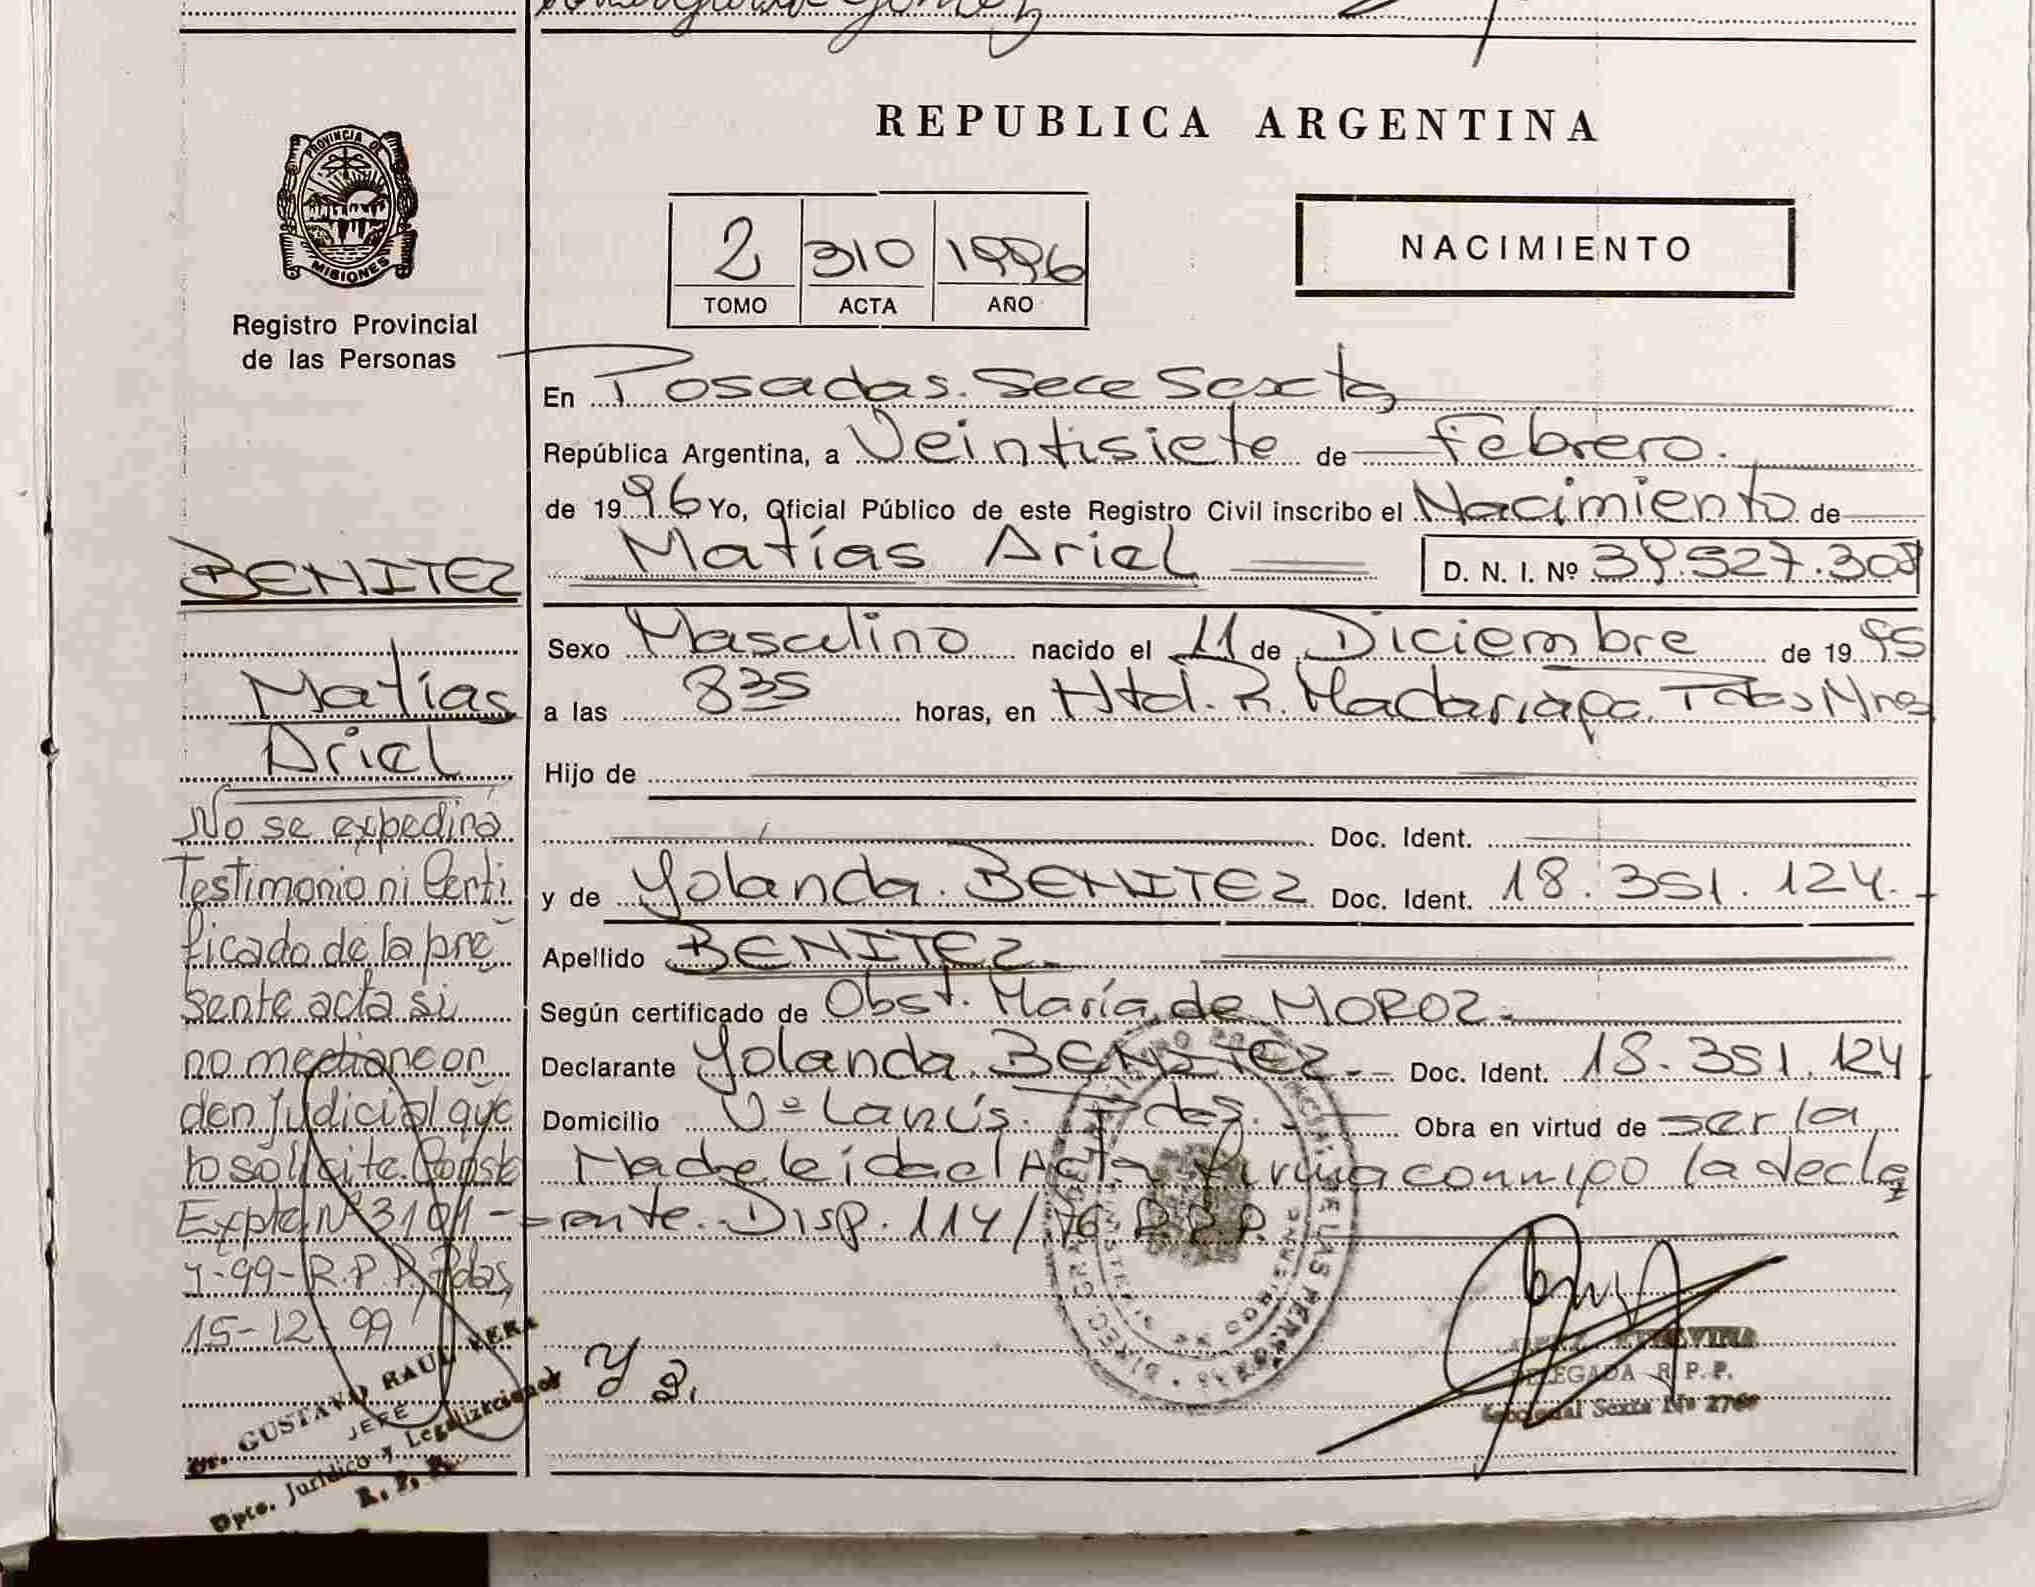 Gomez
REPUBLICA ARGENTINA
PROVINCIA DE
MISIONES
Registro Provincial
de las Personas
2 310 1996
TOMO ACTA AÑO
NACIMIENTO
En Posadas. Secc Sexta
República Argentina, a Veintisiete de Febrero.
de 1996 Yo, Oficial Público de este Registro Civil inscribo el Nacimiento de
Matías Ariel D. N. I. Nº 39.527.308
Sexo Masculino nacido el 11 de Diciembre de 1995
a las 835 horas, en Htal. R. Madariaga. Pdas Mnes
Hijo de
Doc. Ident.
y de Yolanda. BENITEZ Doc. Ident. 18.351.124.
Apellido BENITEZ.
Según certificado de Obst. María de MOROZ.
Declarante Yolanda BENITEZ. Doc. Ident. 18.351.124
Domicilio Vº Lanús. Pdas. Obra en virtud de ser la
Madre leída el Acta firma conmigo la decla
rante. Disp. 114/76 R.P.P.
BENITEZ
Matías
Ariel
No se expedirá
Testimonio ni Certi
ficado de la pre
sente acta si
no mediane or
den judicial que
lo solicite. Conste
Expte Nº 3101-
Y-99-R.P.P. Pdas,
15-12-99
Dr. GUSTAVO RAUL VERA
JEFE
Dpto. Jurídico y Legalizaciones
R. P. P.
DELEGADA R. P. P.
Seccional Sexta Nº 276